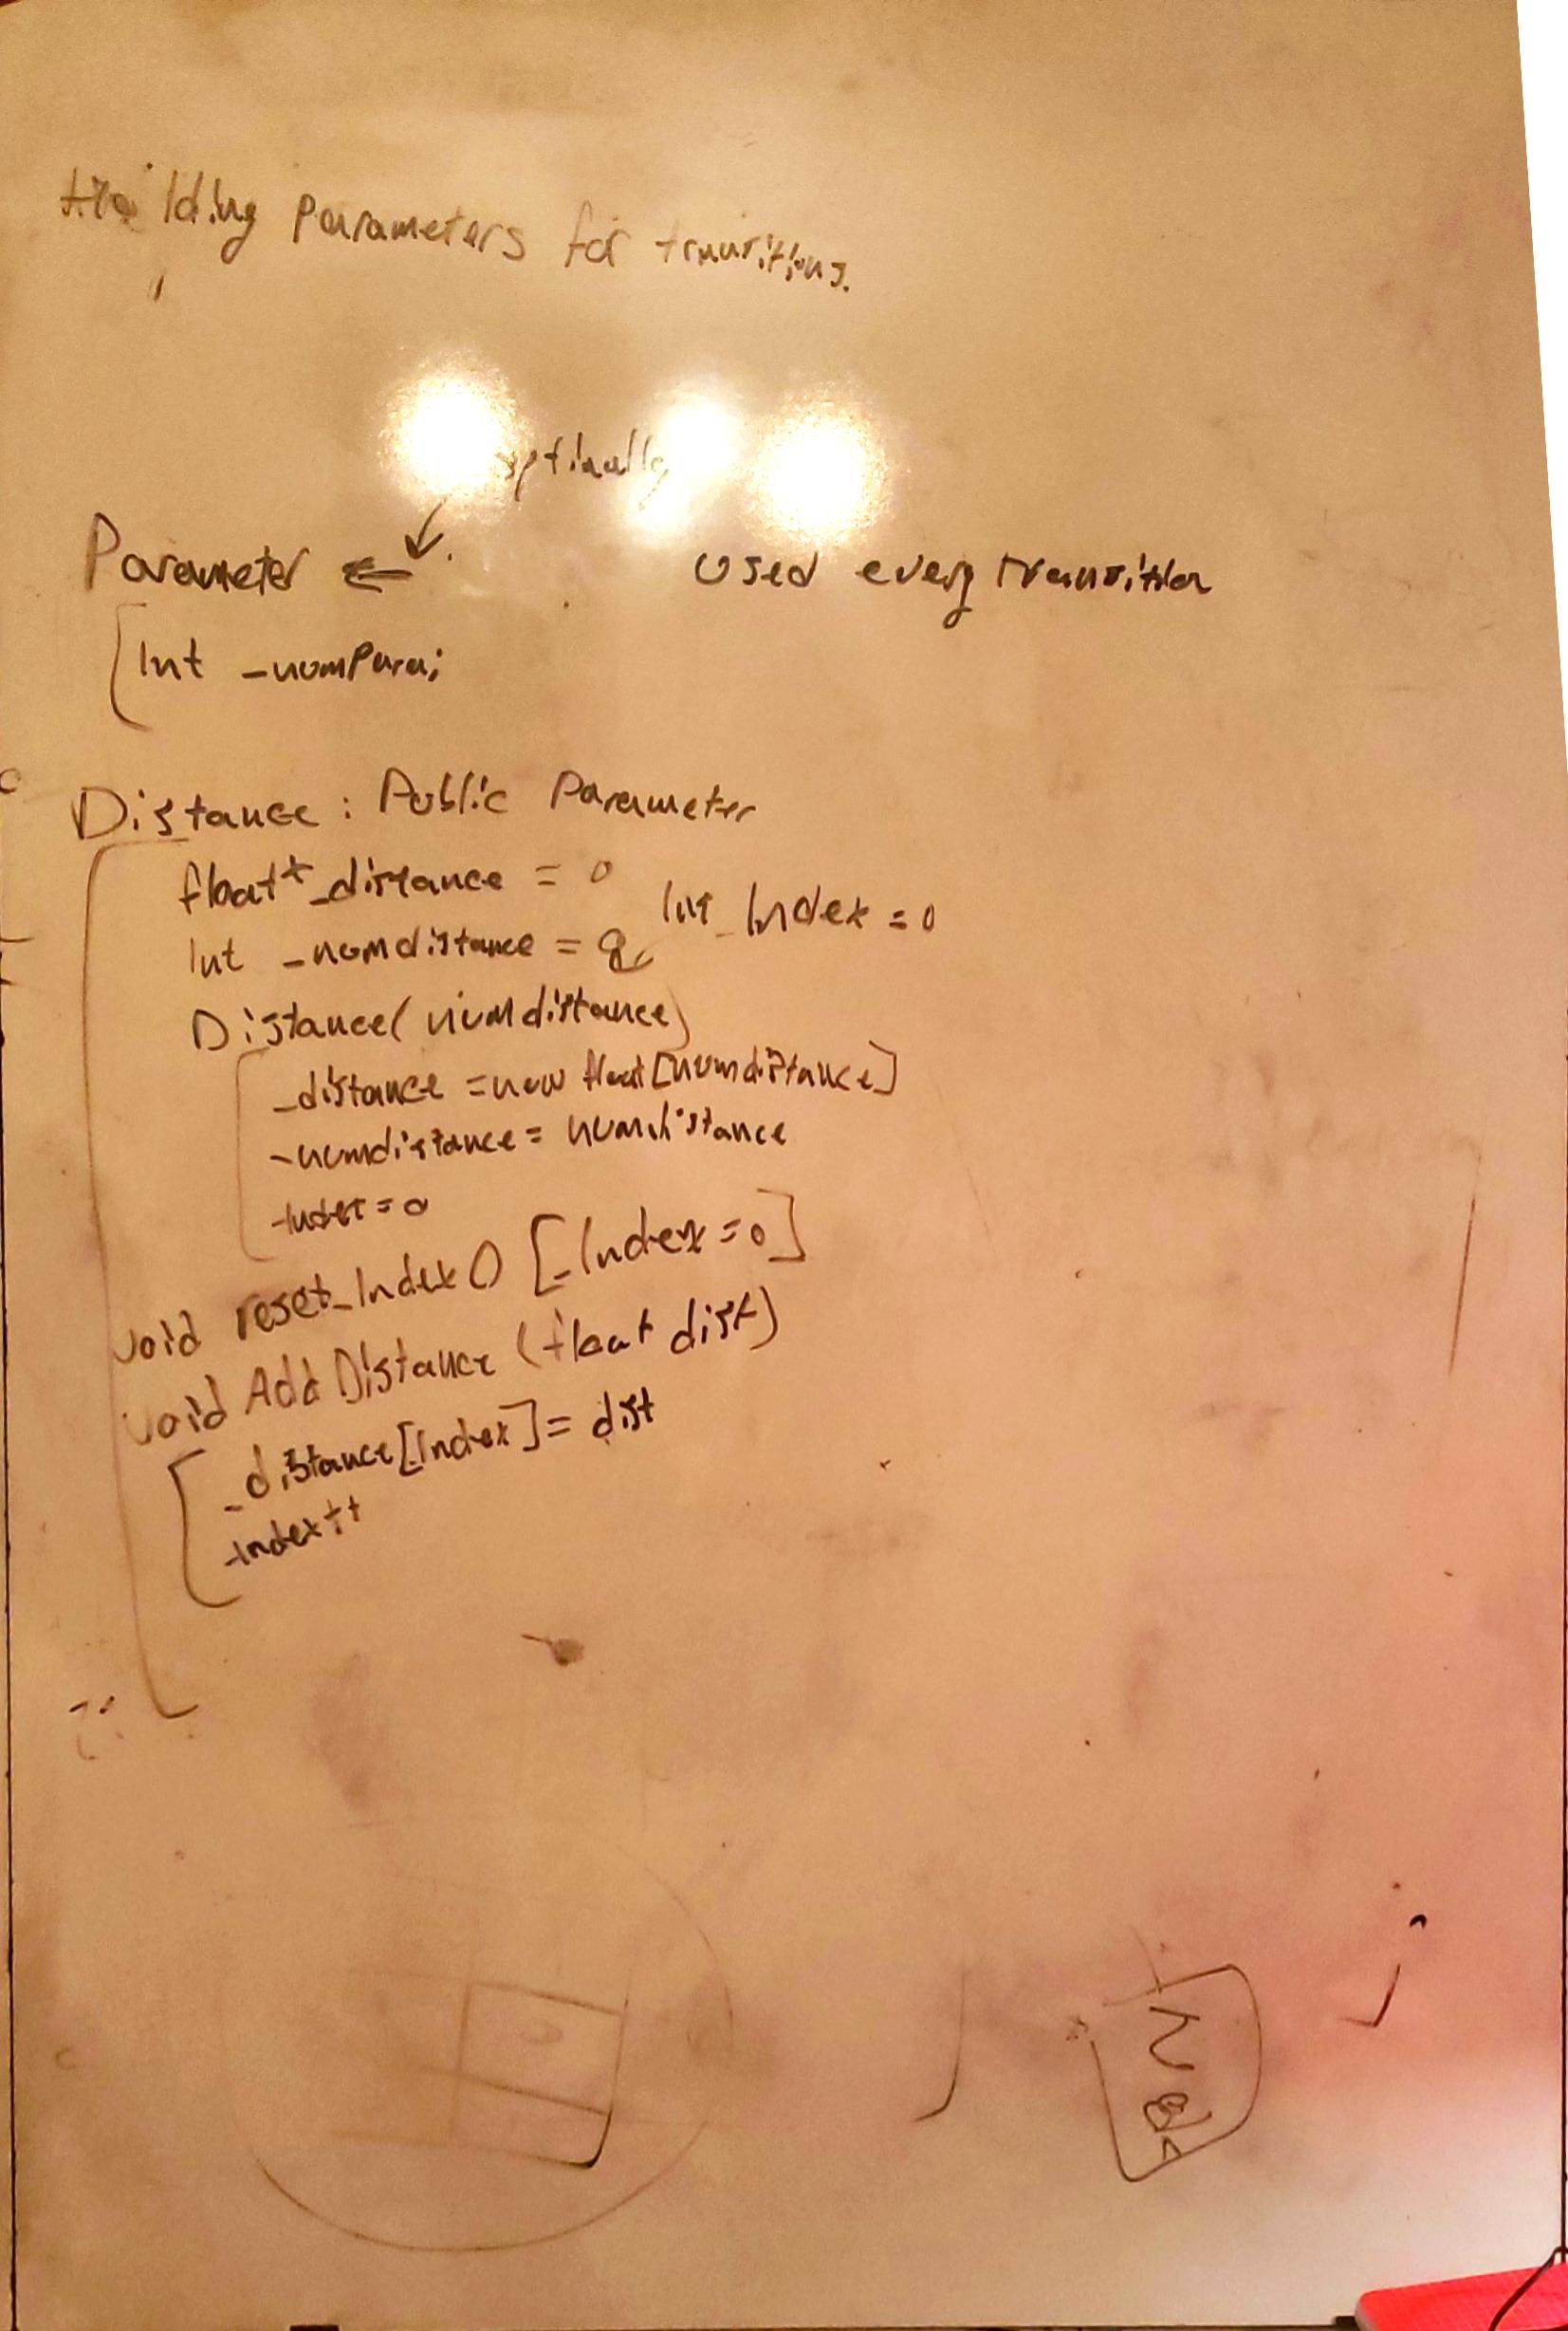 Parameters for transitions.
optionally
Parameter ← Used every transition
Int _numPara;
Distance : Public Parameter
float* _distance = 0
Int _numdistance = 0, Int _Index = 0
Distance( numdistance)
_distance = new float[numdistance]
_numdistance = numdistance
_Index = 0
void reset_Index() [_Index = 0]
void Add Distance (float dist)
_distance[Index] = dist
_Index++